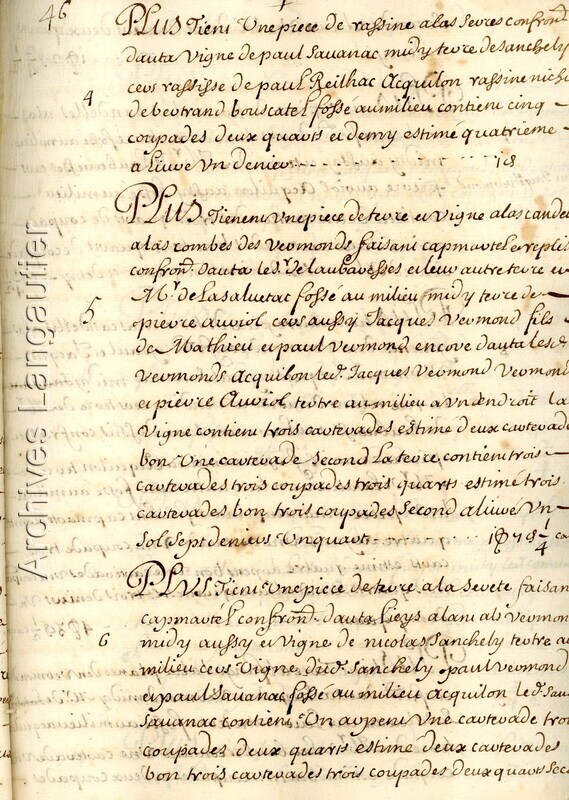 46
PLUS Tient Une piece de rassine a las serres confrond
dauta Vigne de paul Sauanac midy terre de Sanchely
cers rassisse de paul Reilhac Acquilon rassine
4
de bertrand bouscatel fossé au milieu contient cinq
coupades deux quarts et demy estimé quatrieme
a Liuré Un denier - - - - - 1 d
PLUS Tienent Une piece de terre et Vigne a las
a las combes des Vermonds faisant capmartel et repli
confrond. dauta le Sr. de et leur autre terre et
Mr. de Lasaluetat fossé au milieu midy terre de
5
pierre auriol cers aussy Jacques Vermond fils
de Mathieu et paul Vermond encore dauta lesd.
Vermonds acquilon led. Jacques Vermond Vermond
et pierre Auriol tertre au milieu a Un endroit la
Vigne contient trois carterades estimé deux carterade
bon Une carterade Second La terre, contient trois
carterades trois coupades trois quarts estimé trois
carterades bon trois coupades Second aliuré Un
Sol Sept deniers Un quart - - - - 1 s 7 d 1/4
PLUS Tient Une piece de terre a la serete faisan
capmartel confrond. dauta
6
midy aussy et Vigne de nicolas Sanchely tertre au
milieu cers Vigne dud. Sanchely paul Vermond
et paul Sauanac fossé au milieu acquilon led. Sau
Sauanac contient Un arpent Une carterade troi
coupades deux quarts estimé deux carterades
bon trois carterades trois coupades deux quarts Seco
Archives Langautier